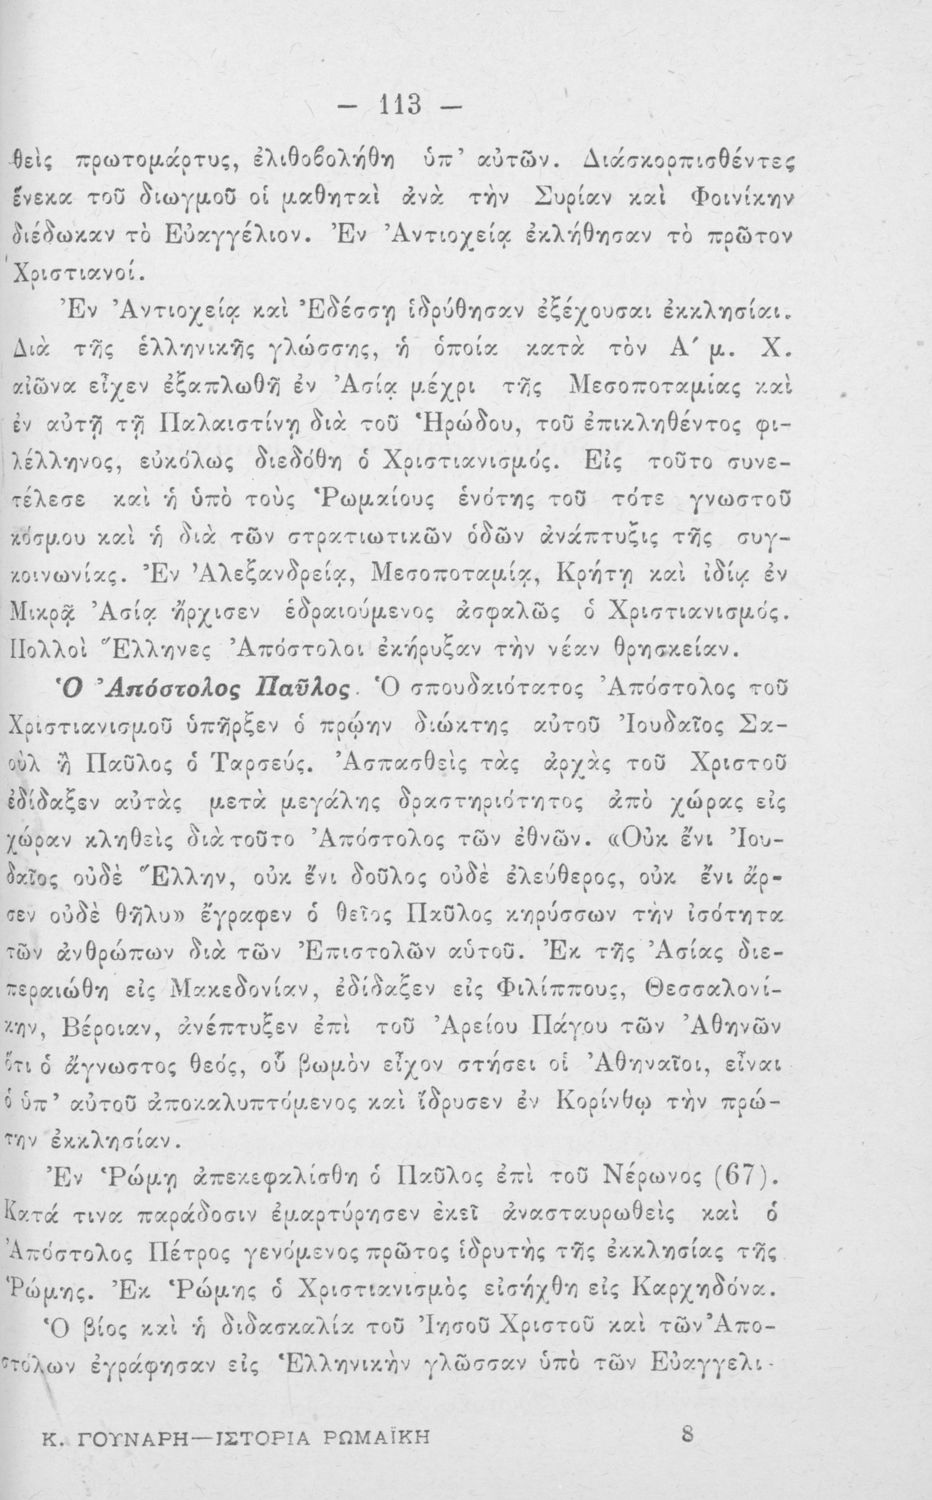 — 113 —
θεὶς πρωτομάρτυς, ἐλιθοβολήθη ὑπ’ αὐτῶν. Διάσκορπισθέντες
ἕνεκα τοῦ διωγμοῦ οἱ μαθηταὶ ἀνὰ τὴν Συρίαν καὶ Φοινίκην
διέδωκαν τὸ Εὐαγγέλιον. Ἐν Ἀντιοχείᾳ ἐκλήθησαν τὸ πρῶτον
Χριστιανοί.
Ἐν Ἀντιοχείᾳ καὶ Ἐδέσσῃ ἱδρύθησαν ἐξέχουσαι ἐκκλησίαι.
Διὰ τῆς ἑλληνικῆς γλώσσης, ἡ ὁποία κατὰ τὸν Α΄ μ. Χ.
αἰῶνα εἶχεν ἐξαπλωθῆ ἐν Ἀσίᾳ μέχρι τῆς Μεσοποταμίας καὶ
ἐν αὐτῇ τῇ Παλαιστίνῃ διὰ τοῦ Ἡρώδου, τοῦ ἐπικληθέντος φι-
λέλληνος, εὐκόλως διεδόθη ὁ Χριστιανισμός. Εἰς τοῦτο συνε-
τέλεσε καὶ ἡ ὑπὸ τοὺς Ῥωμαίους ἑνότης τοῦ τότε γνωστοῦ
κόσμου καὶ ἡ διὰ τῶν στρατιωτικῶν ὁδῶν ἀνάπτυξις τῆς συγ-
κοινωνίας. Ἐν Ἀλεξανδρείᾳ, Μεσοποταμίᾳ, Κρήτῃ καὶ ἰδίᾳ ἐν
Μικρᾷ Ἀσίᾳ ἤρχισεν ἑδραιούμενος ἀσφαλῶς ὁ Χριστιανισμός.
Πολλοὶ Ἕλληνες Ἀπόστολοι ἐκήρυξαν τὴν νέαν θρησκείαν.
Ὁ Ἀπόστολος Παῦλος. Ὁ σπουδαιότατος Ἀπόστολος τοῦ
Χριστιανισμοῦ ὑπῆρξεν ὁ πρῴην διώκτης αὐτοῦ Ἰουδαῖος Σα-
οὺλ ἢ Παῦλος ὁ Ταρσεύς. Ἀσπασθεὶς τὰς ἀρχὰς τοῦ Χριστοῦ
ἐδίδαξεν αὐτὰς μετὰ μεγάλης δραστηριότητος ἀπὸ χώρας εἰς
χώραν κληθεὶς διὰ τοῦτο Ἀπόστολος τῶν ἐθνῶν. «Οὐκ ἔνι Ἰου-
δαῖος οὐδὲ Ἕλλην, οὐκ ἔνι δοῦλος οὐδὲ ἐλεύθερος, οὐκ ἔνι ἄρ-
σεν οὐδὲ θῆλυ» ἔγραφεν ὁ θεῖος Παῦλος κηρύσσων τὴν ἰσότητα
τῶν ἀνθρώπων διὰ τῶν Ἐπιστολῶν αὑτοῦ. Ἐκ τῆς Ἀσίας διε-
περαιώθη εἰς Μακεδονίαν, ἐδίδαξεν εἰς Φιλίππους, Θεσσαλονί-
κην, Βέροιαν, ἀνέπτυξεν ἐπὶ τοῦ Ἀρείου Πάγου τῶν Ἀθηνῶν
ὅτι ὁ ἄγνωστος θεός, οὗ βωμὸν εἶχον στήσει οἱ Ἀθηναῖοι, εἶναι
ὁ ὑπ’ αὐτοῦ ἀποκαλυπτόμενος καὶ ἵδρυσεν ἐν Κορίνθῳ τὴν πρώ-
την ἐκκλησίαν.
Ἐν Ῥώμῃ ἀπεκεφαλίσθη ὁ Παῦλος ἐπὶ τοῦ Νέρωνος (67).
Κατά τινα παράδοσιν ἐμαρτύρησεν ἐκεῖ ἀνασταυρωθεὶς καὶ ὁ
Ἀπόστολος Πέτρος γενόμενος πρῶτος ἱδρυτὴς τῆς ἐκκλησίας τῆς
Ῥώμης. Ἐκ Ῥώμης ὁ Χριστιανισμὸς εἰσήχθη εἰς Καρχηδόνα.
Ὁ βίος καὶ ἡ διδασκαλία τοῦ Ἰησοῦ Χριστοῦ καὶ τῶν Ἀπο-
στόλων ἐγράφησαν εἰς Ἑλληνικὴν γλῶσσαν ὑπὸ τῶν Εὐαγγελι-
Κ. ΓΟΥΝΑΡΗ—ΙΣΤΟΡΙΑ ΡΩΜΑΪΚΗ 8